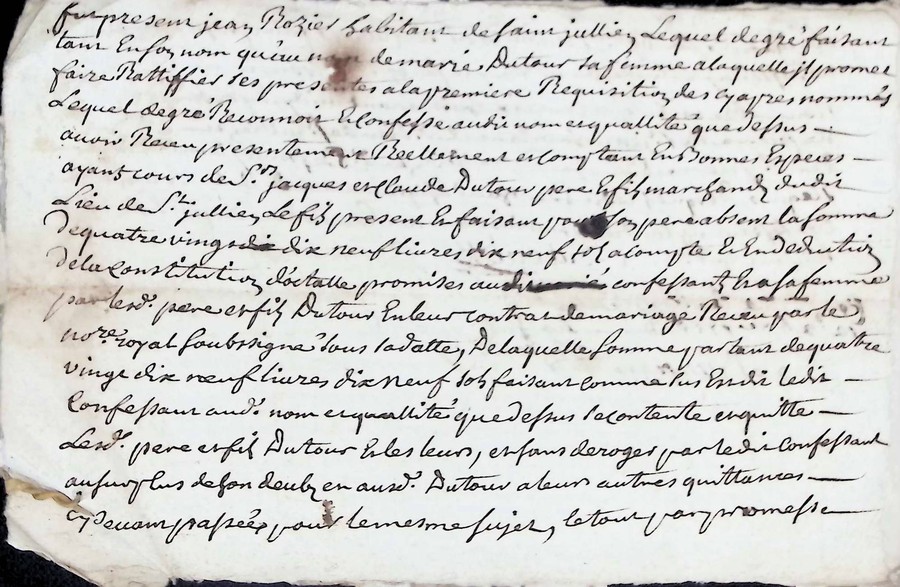 fut present jean Rozier habitant de saint jullien Lequel de gré faisant
tant En son nom qu'au nom de marie Dutour sa femme a laquelle jl promet
faire Rattiffier ses presentes a la premiere Requisition des cy apres nommés
Lequel de gré Reconnoit Et confesse audit nom et quallité que dessus —
avoir Receu presentement Reellement et comptant En Bonnes Especes —
ayant cours de Srs jacques et Claude Dutour pere Et fils marchands dudit
Lieu de St jullien Le fils present Et faisant pour son pere absent la somme
De quatre vingt dix neuf livres dix neuf sols a Compte Et En deduction
De la Constitution dotalle promises au confessant Et a sa femme
par lesd. pere et fils Dutour En leur contrat de mariage Receu par le
nore royal soubssigné sous sa datte, De laquelle somme partant de quatre
vingt dix neuf livres dix neuf sols faisant comme sus Est dit ledit —
Confessant aud. nom et quallité que dessus se contente et quitte —
Lesd. pere et fils Dutour Et les leurs, et sans deroger par ledit Confessant
au surplus de son deub en ausd. Dutour a leurs autres quittances —
Cy devant passées pour le mesme sujet, le tout par promesse —